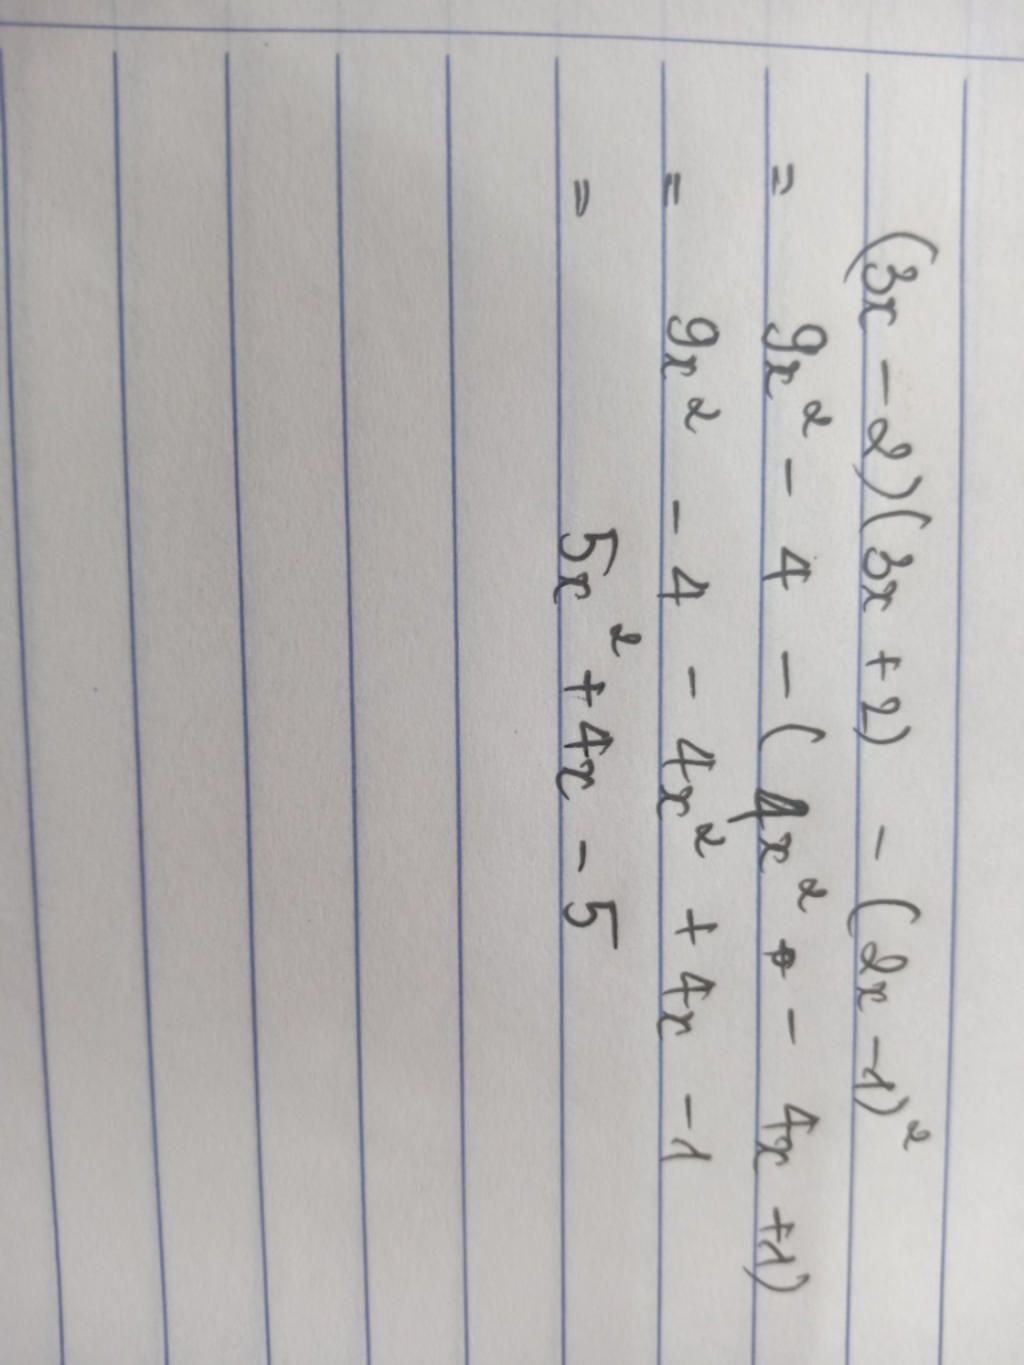 (3x - 2)(3x + 2) - (2x - 1)²
= 9x² - 4 - (4x² - 4x + 1)
= 9x² - 4 - 4x² + 4x - 1
= 5x² + 4x - 5